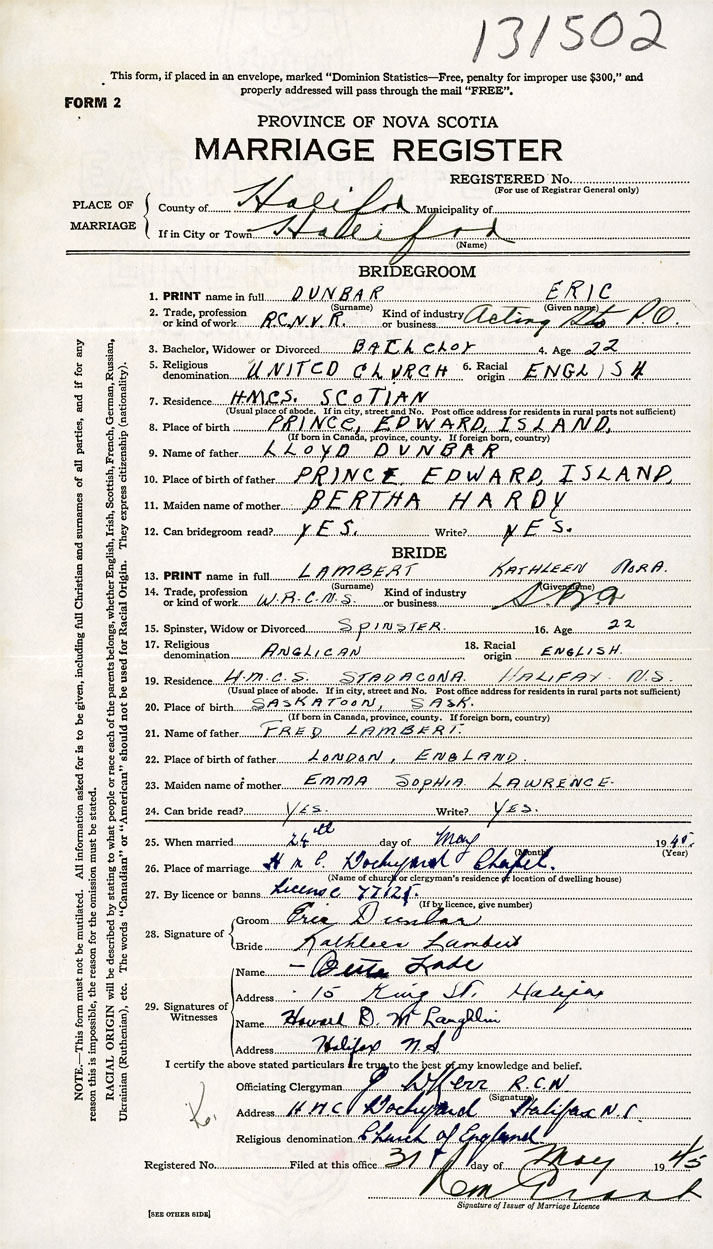 131502
This form, if placed in an envelope, marked "Dominion Statistics—Free, penalty for improper use $300," and
properly addressed will pass through the mail "FREE".
FORM 2
PROVINCE OF NOVA SCOTIA
MARRIAGE REGISTER
REGISTERED No.
(For use of Registrar General only)
PLACE OF MARRIAGE
County of Halifax Municipality of
If in City or Town Halifax
(Name)
BRIDEGROOM
1. PRINT name in full DUNBAR ERIC
(Surname) (Given name)
2. Trade, profession or kind of work R.C.N.V.R. Kind of industry or business Acting Sto P.O.
3. Bachelor, Widower or Divorced BATChelor 4. Age 22
5. Religious denomination UNITED CHURCH 6. Racial origin ENGLISH
7. Residence HMCS. SCOTIAN
(Usual place of abode. If in city, street and No. Post office address for residents in rural parts not sufficient)
8. Place of birth PRINCE, EDWARD, ISLAND,
(If born in Canada, province, county. If foreign born, country)
9. Name of father LLOYD DUNBAR
10. Place of birth of father PRINCE EDWARD, ISLAND,
11. Maiden name of mother BERTHA HARDY
12. Can bridegroom read? YES. Write? YES.
BRIDE
13. PRINT name in full LAMBERT KATHLEEN NORA.
(Surname) (Given name)
14. Trade, profession or kind of work W.R.C.N.S. Kind of industry or business S.B.A
15. Spinster, Widow or Divorced SPINSTER. 16. Age 22
17. Religious denomination ANGLICAN 18. Racial origin ENGLISH.
19. Residence H.M.C.S. STADACONA. HALIFAX N.S.
(Usual place of abode. If in city, street and No. Post office address for residents in rural parts not sufficient)
20. Place of birth SASKATOON, SASK.
(If born in Canada, province, county. If foreign born, country)
21. Name of father FRED LAMBERT.
22. Place of birth of father LONDON, ENGLAND.
23. Maiden name of mother EMMA SOPHIA LAWRENCE.
24. Can bride read? YES. Write? YES.
25. When married 26th day of May 1945.
(Month) (Year)
26. Place of marriage H M C Dockyard Chapel.
(Name of church or clergyman's residence or location of dwelling house)
27. By licence or banns License
(If by licence, give number)
28. Signature of
Groom Eric Dunbar
Bride Kathleen Lambert
29. Signatures of Witnesses
Name
Address 15 King St. Halifax
Name Howard D. McLaughlin
Address Halifax N.S.
I certify the above stated particulars are true to the best of my knowledge and belief.
Officiating Clergyman Kerr R.C.N.
(Signature)
Address H M C Dockyard Halifax N.S.
Religious denomination Church of England
Registered No. Filed at this office 31st day of May 1945
Signature of Issuer of Marriage Licence
[SEE OTHER SIDE]
NOTE.—This form must not be mutilated. All information asked for is to be given, including full Christian and surnames of all parties, and if for any
reason this is impossible, the reason for the omission must be stated.
RACIAL ORIGIN will be described by stating to what people or race each of the parents belongs, whether English, Irish, Scottish, French, German, Russian,
Ukrainian (Ruthenian), etc. The words "Canadian" or "American" should not be used for Racial Origin. They express citizenship (nationality).